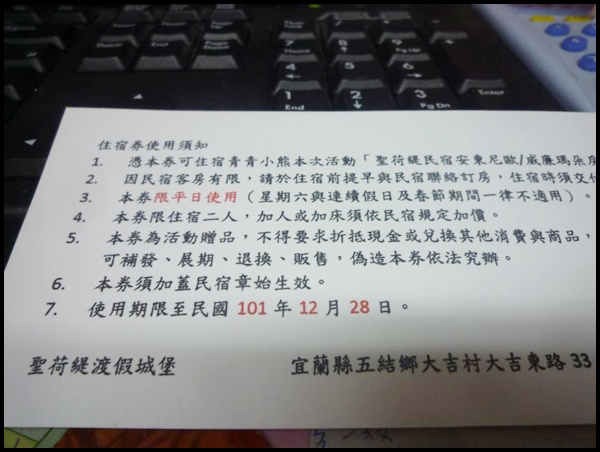 住宿券使用須知
1. 憑本券可住宿青青小熊本次活動「聖荷緹民宿安東尼歐/威廉瑪朵房
2. 因民宿客房有限，請於住宿前提早與民宿聯絡訂房，住宿時須交付
3. 本券限平日使用（星期六與連續假日及春節期間一律不適用）。
4. 本券限住宿二人，加人或加床須依民宿規定加價。
5. 本券為活動贈品，不得要求折抵現金或兌換其他消費與商品，
可補發、展期、退換、販售，偽造本券依法究辦。
6. 本券須加蓋民宿章始生效。
7. 使用期限至民國 101 年 12 月 28 日。
聖荷緹渡假城堡 宜蘭縣五結鄉大吉村大吉東路 33
Delete
End
Page Down
7
Home
8
9
Pg Up
4
5
6
1
End
2
3
Pg Dn
Enter